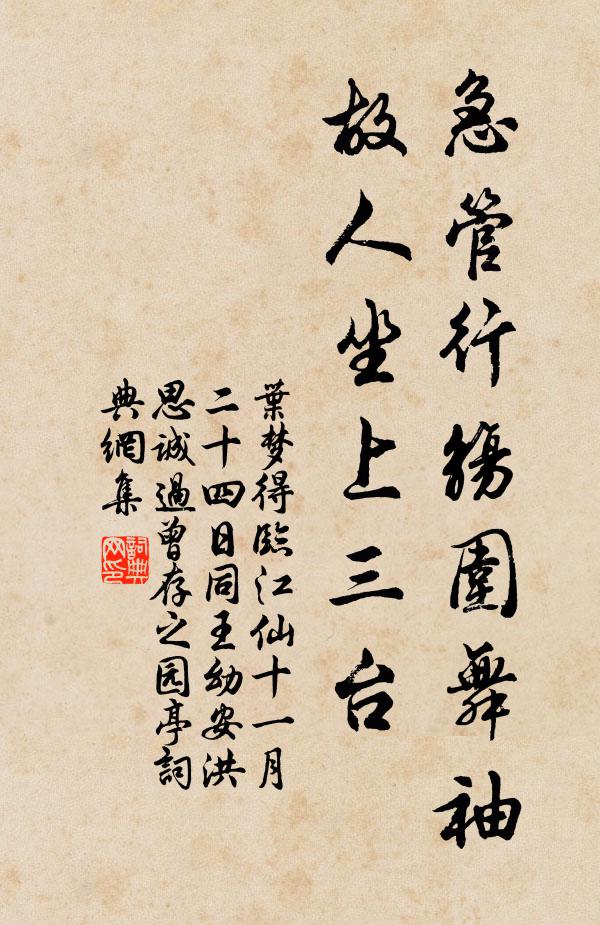 急管行觴圍舞袖
故人坐上三台
葉梦得臨江仙十一月
二十四日同王幼安洪
思誠過曾存之园亭詞
典網集
詞典网印